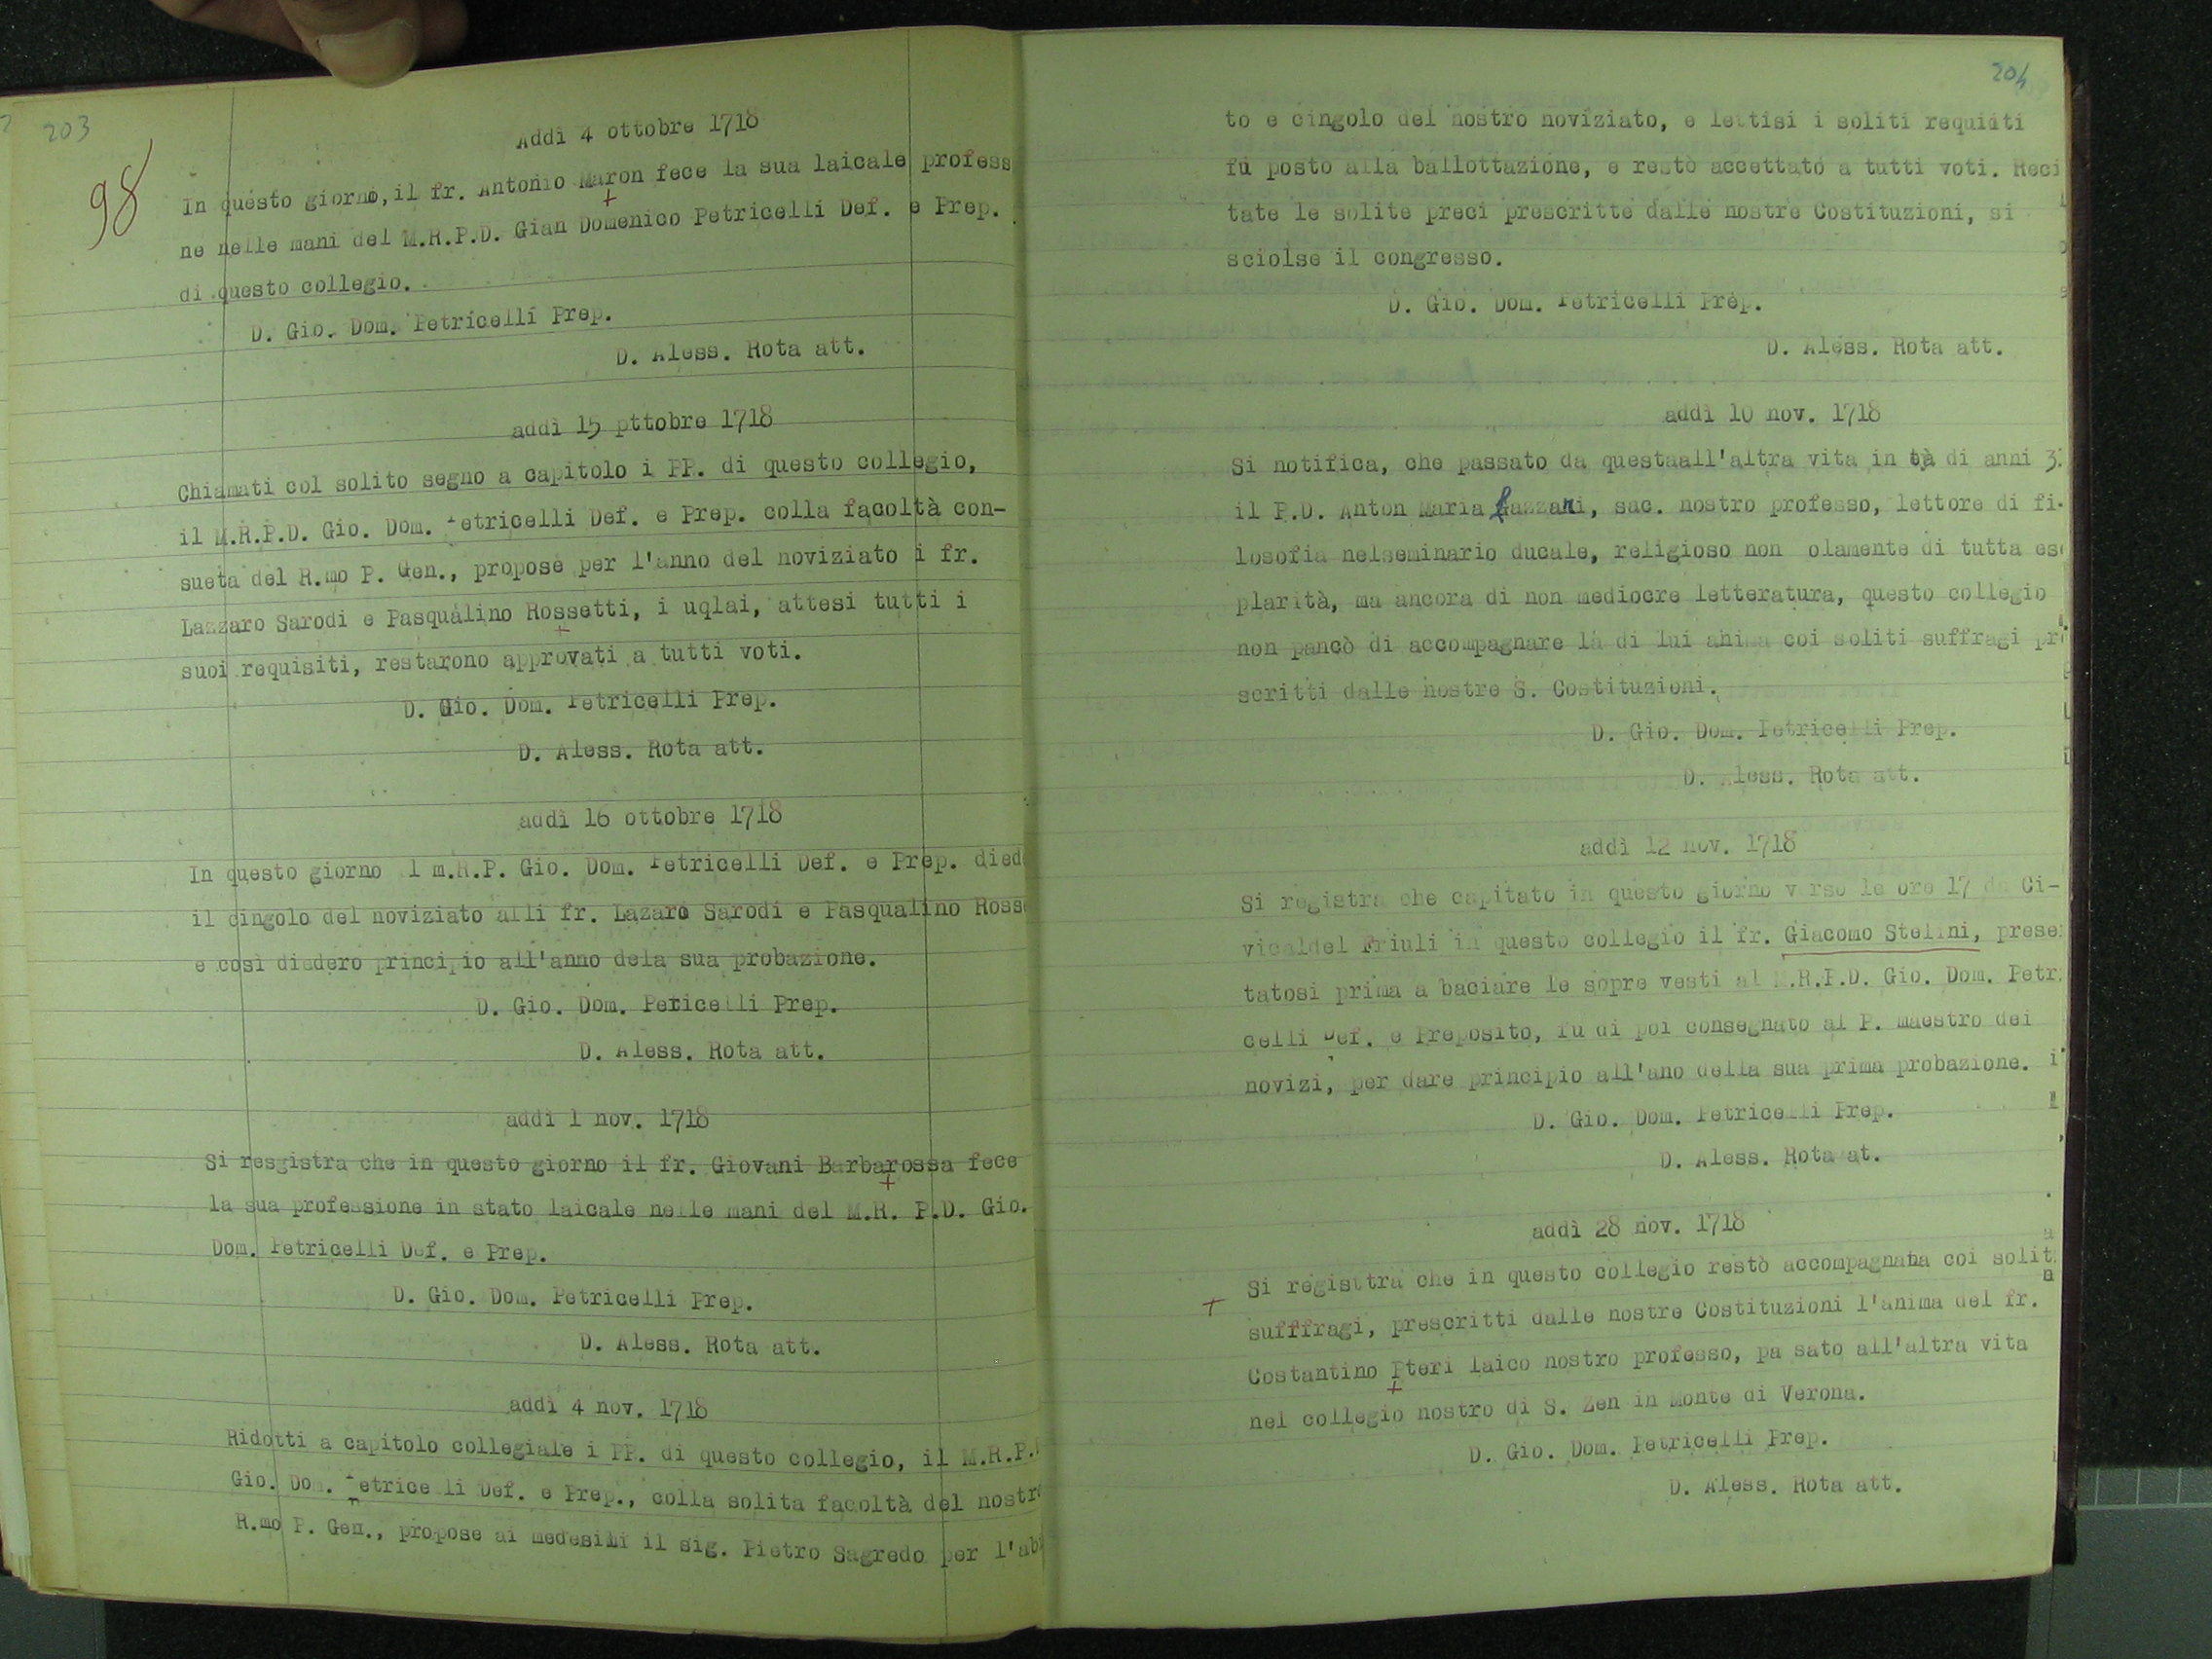 203
98
Addì 4 ottobre 1718
In questo giorno, il fr. Antonio Maron fece la sua laicale profess
ne nelle mani del M.R.P.D. Gian Domenico Petricelli Def. e Prep.
di questo collegio.
D. Gio. Dom. Petricelli Prep.
D. Aless. Rota att.
addì 15 pttobre 1718
Chiamati col solito segno a capitolo i PP. di questo collegio,
il M.R.P.D. Gio. Dom. Petricelli Def. e Prep. colla facoltà con-
sueta del R.mo P. Gen., propose per l'anno del noviziato i fr.
Lazzaro Sarodi e Pasqualino Rossetti, i uqlai, attesi tutti i
suoi requisiti, restarono approvati a tutti voti.
D. Gio. Dom. Petricelli Prep.
D. Aless. Rota att.
addì 16 ottobre 1718
In questo giorno l m.R.P. Gio. Dom. Petricelli Def. e Prep. died
il cingolo del noviziato alli fr. Lazaro Sarodi e Pasqualino Ross
e così diedero principio all'anno dela sua probazione.
D. Gio. Dom. Pericelli Prep.
D. Aless. Rota att.
addì 1 nov. 1718
Si resgistra che in questo giorno il fr. Giovani Barbarossa fece
la sua professione in stato laicale nelle mani del M.R. P.D. Gio.
Dom. Petricelli Def. e Prep.
D. Gio. Dom. Petricelli Prep.
D. Aless. Rota att.
addì 4 nov. 1718
Ridotti a capitolo collegiale i PP. di questo collegio, il M.R.P.
Gio. Dom. Petricelli Def. e Prep., colla solita facoltà del nostr
R.mo P. Gen., propose ai medesimi il sig. Pietro Sagredo per l'ab
204
to e cingolo del nostro noviziato, e lettisi i soliti requisti
fù posto alla ballottazione, e restò accettato a tutti voti. Reci
tate le solite preci prescritte dalle nostre Costituzioni, si
sciolse il congresso.
D. Gio. Dom. Petricelli Prep.
D. Aless. Rota att.
addì 10 nov. 1718
Si notifica, che passato da questaall'altra vita in tà di anni 3
il P.D. Anton Maria Lazzari, sac. nostro professo, lettore di fi-
losofia nelseminario ducale, religioso non olamente di tutta es
plarità, ma ancora di non mediocre letteratura, questo collegio
non pancò di accompagnare la di lui anima coi soliti suffragi pr
scritti dalle nostre S. Costituzioni.
D. Gio. Dom. Petricelli Prep.
D. Aless. Rota att.
addì 12 nov. 1718
Si registra che capitato in questo giorno verso le ore 17 da Ci-
vicaldel Friuli in questo collegio il fr. Giacomo Stelini, prese
tatosi prima a baciare le sopre vesti al M.R.P.D. Gio. Dom. Petr
celli Def. e Preposito, fu di poi consegnato al P. maestro dei
novizi, per dare principio all'ano della sua prima probazione.
D. Gio. Dom. Petricelli Prep.
D. Aless. Rota at.
addì 28 nov. 1718
Si registtra che in questo collegio restò accompagnana coi solit
sufffragi, prescritti dalle nostre Costituzioni l'anima del fr.
Costantino Pteri laico nostro professo, pa sato all'altra vita
nel collegio nostro di S. Zen in Monte di Verona.
D. Gio. Dom. Petricelli Prep.
D. Aless. Rota att.